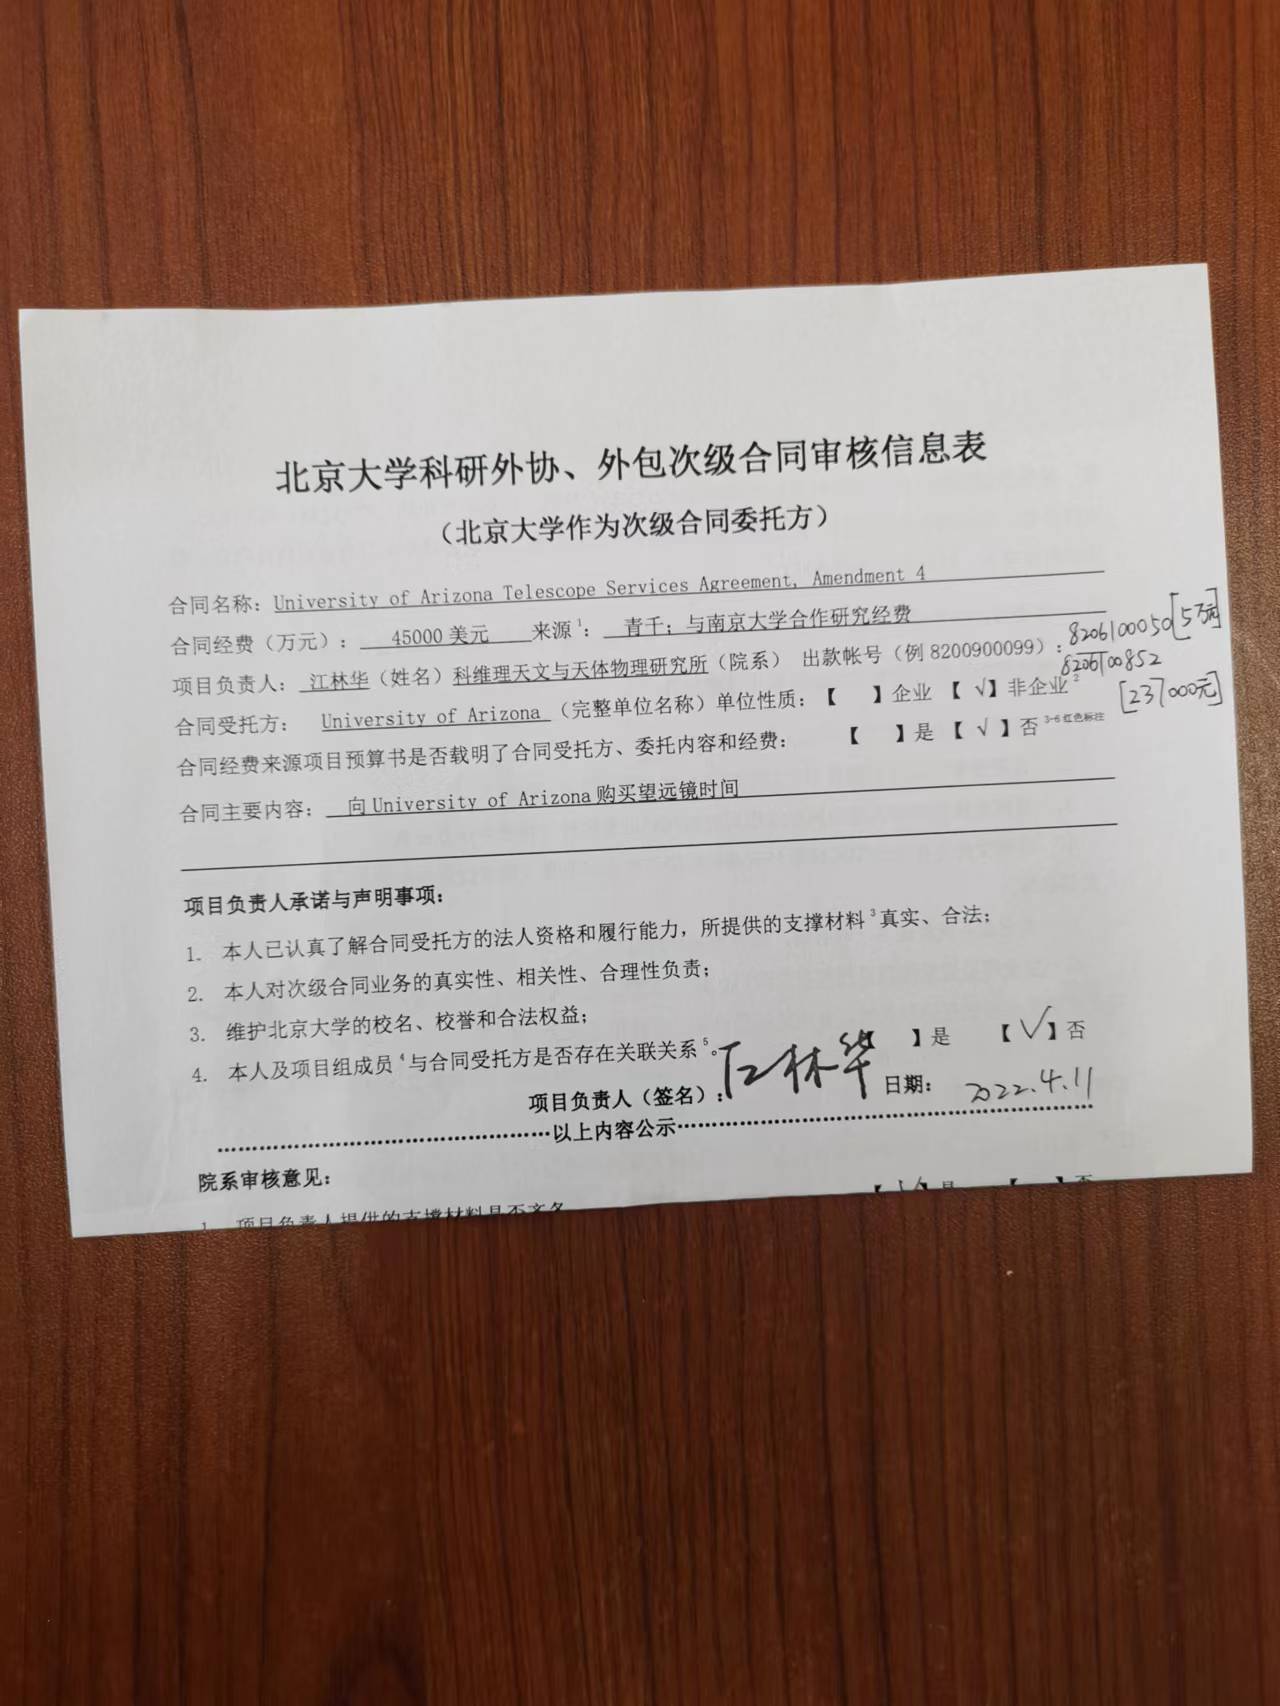 北京大学科研外协、外包次级合同审核信息表
（北京大学作为次级合同委托方）
合同名称：University of Arizona Telescope Services Agreement, Amendment 4
合同经费（万元）： 45000 美元 来源1： 青千；与南京大学合作研究经费
项目负责人： 江林华（姓名）科维理天文与天体物理研究所（院系） 出款帐号（例 8200900099）：8206100050[5万元]
8206100852
[237000元]
合同受托方： University of Arizona （完整单位名称）单位性质：【 】企业 【 √】非企业2
合同经费来源项目预算书是否载明了合同受托方、委托内容和经费： 【 】是 【 √ 】否 3-6 红色标注
合同主要内容： 向 University of Arizona 购买望远镜时间
项目负责人承诺与声明事项：
1. 本人已认真了解合同受托方的法人资格和履行能力，所提供的支撑材料3真实、合法；
2. 本人对次级合同业务的真实性、相关性、合理性负责；
3. 维护北京大学的校名、校誉和合法权益；
4. 本人及项目组成员4与合同受托方是否存在关联关系5。【 】是 【√】否
项目负责人（签名）：江林华 日期： 2022.4.11
以上内容公示
院系审核意见：
1. 项目负责人提供的支撑材料是否齐备 【√】是 【 】否